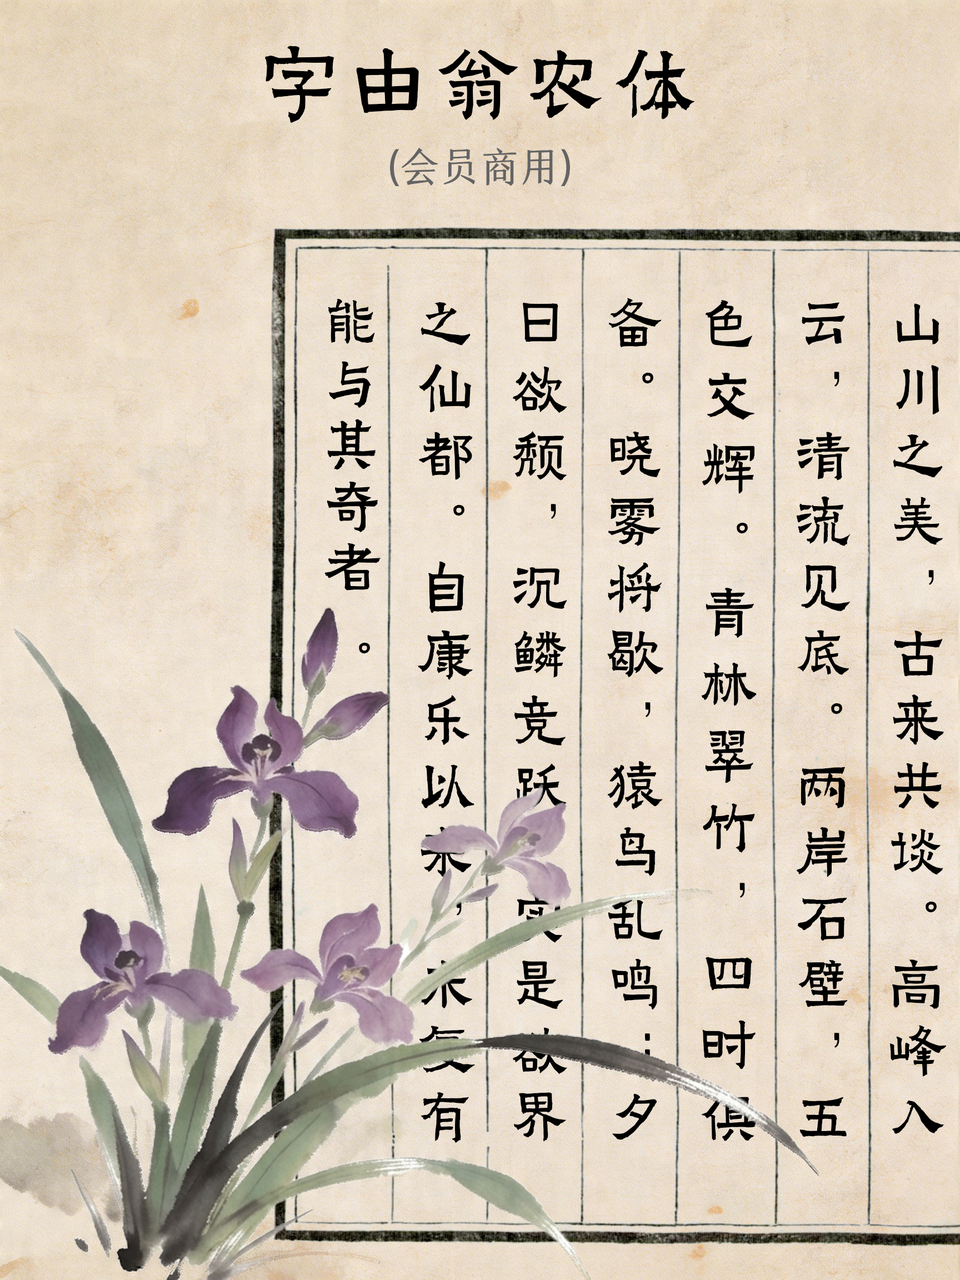 字由翁农体
(会员商用)
山川之美，古来共埮。高峰入
云，清流见底。两岸石壁，五
色交辉。青林翠竹，四时俱
备。晓雾将歇，猿鸟乱鸣；夕
日欲颓，沉鳞竞跃实是欲界
之仙都。自康乐以来，未复有
能与其奇者。